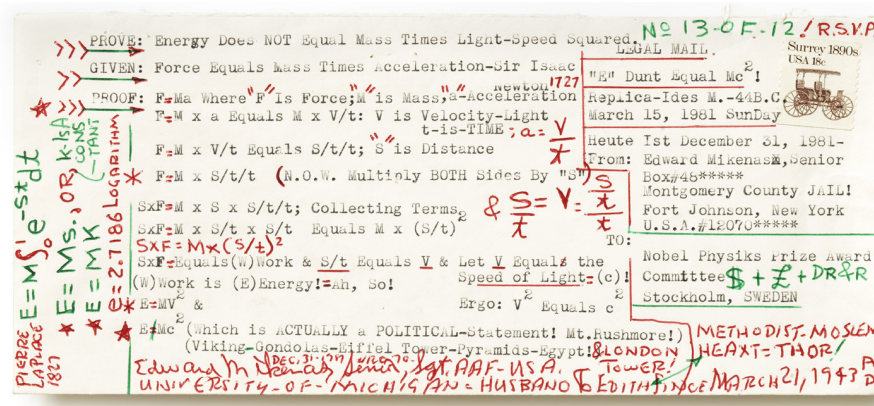 No 13-OF-12! R.S.V.P.
PROVE: Energy Does NOT Equal Mass Times Light-Speed Squared.
GIVEN: Force Equals Mass Times Acceleration-Sir Isaac
Newton 1727
PROOF: F=Ma Where "F" Is Force; "M" is Mass, "a"-Acceleration
F=M x a Equals M x V/t: V is Velocity-Light
t-is-TIME; a= V/t
F=M x V/t Equals S/t/t; "S" is Distance
F=M x S/t/t (N.O.W. Multiply BOTH Sides By "S")
SxF=M x S x S/t/t; Collecting Terms,
& S/t = V = S/t/t
SxF=M x S/t x S/t Equals M x (S/t)2
SxF=Mx(S/t)2
SxF=Equals(W)Work & S/t Equals V & Let V Equals the
Speed of Light=(c)!
(W)Work is (E)Energy!=Ah, So!
E=MV2 & Ergo: V2 Equals c2
E≠Mc2 (Which is ACTUALLY a POLITICAL-Statement! Mt.Rushmore!)
(Viking-Gondolas-Eiffel Tower-Pyramids-Egypt!
& LONDON
TOWER!
DEC. 31-1917
Edward M. Mikenas, Senior, Sgt. AAF-USA.
UNIVERSITY-OF-MICHIGAN=HUSBAND To EDITH SINCE MARCH 21, 1943 AD
LEGAL MAIL.
Surrey 1890s
USA 18c
"E" Dunt Equal Mc2!
Replica-Ides M.-44B.C.
March 15, 1981 SunDay
Heute Ist December 31, 1981-
From: Edward Mikenas, Senior
Box#48*****
Montgomery County JAIL!
Fort Johnson, New York
U.S.A.#12070*****
TO:
Nobel Physiks Prize Award
Committee $ + £ + DR&R
Stockholm, SWEDEN
METHODIST-MOSLEM
HEAXT=THOR!
PIERRE LAPLACE 1827
E=M∫01 e-st dt
E=Ms., OR, K-ISA CONSTANT
E=MK
e=2.7186 LOGARITHM